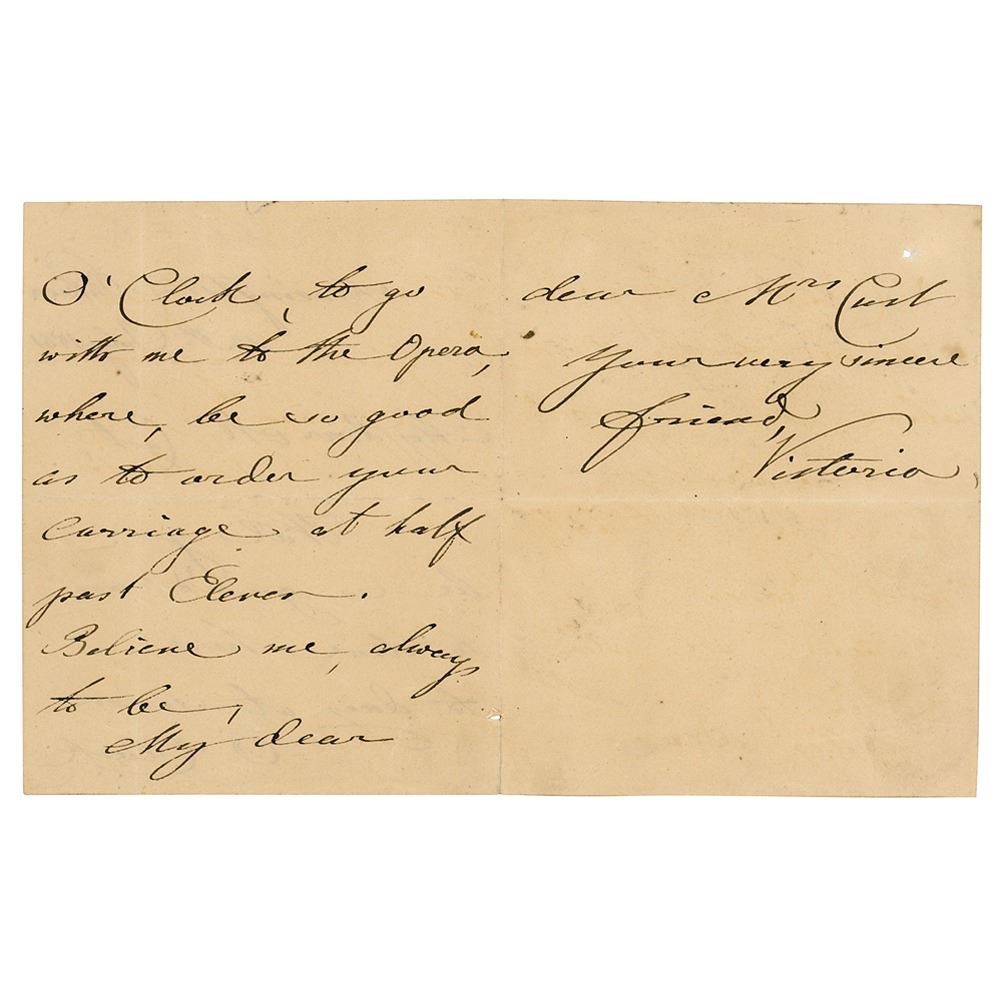 O' Clock, to go
with me to the Opera,
where, be so good
as to order your
carriage at half
past Eleven.
Believe me, always
to be,
My dear
dear Mrs Cust
Your very sincere
friend,
Victoria